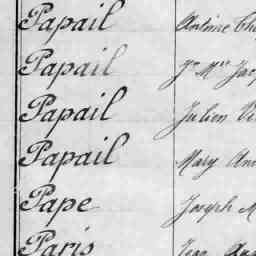 Papail Antoine
Papail Jn Mie
Papail Julien
Papail Mary
Pape Joseph M
Paris Jean